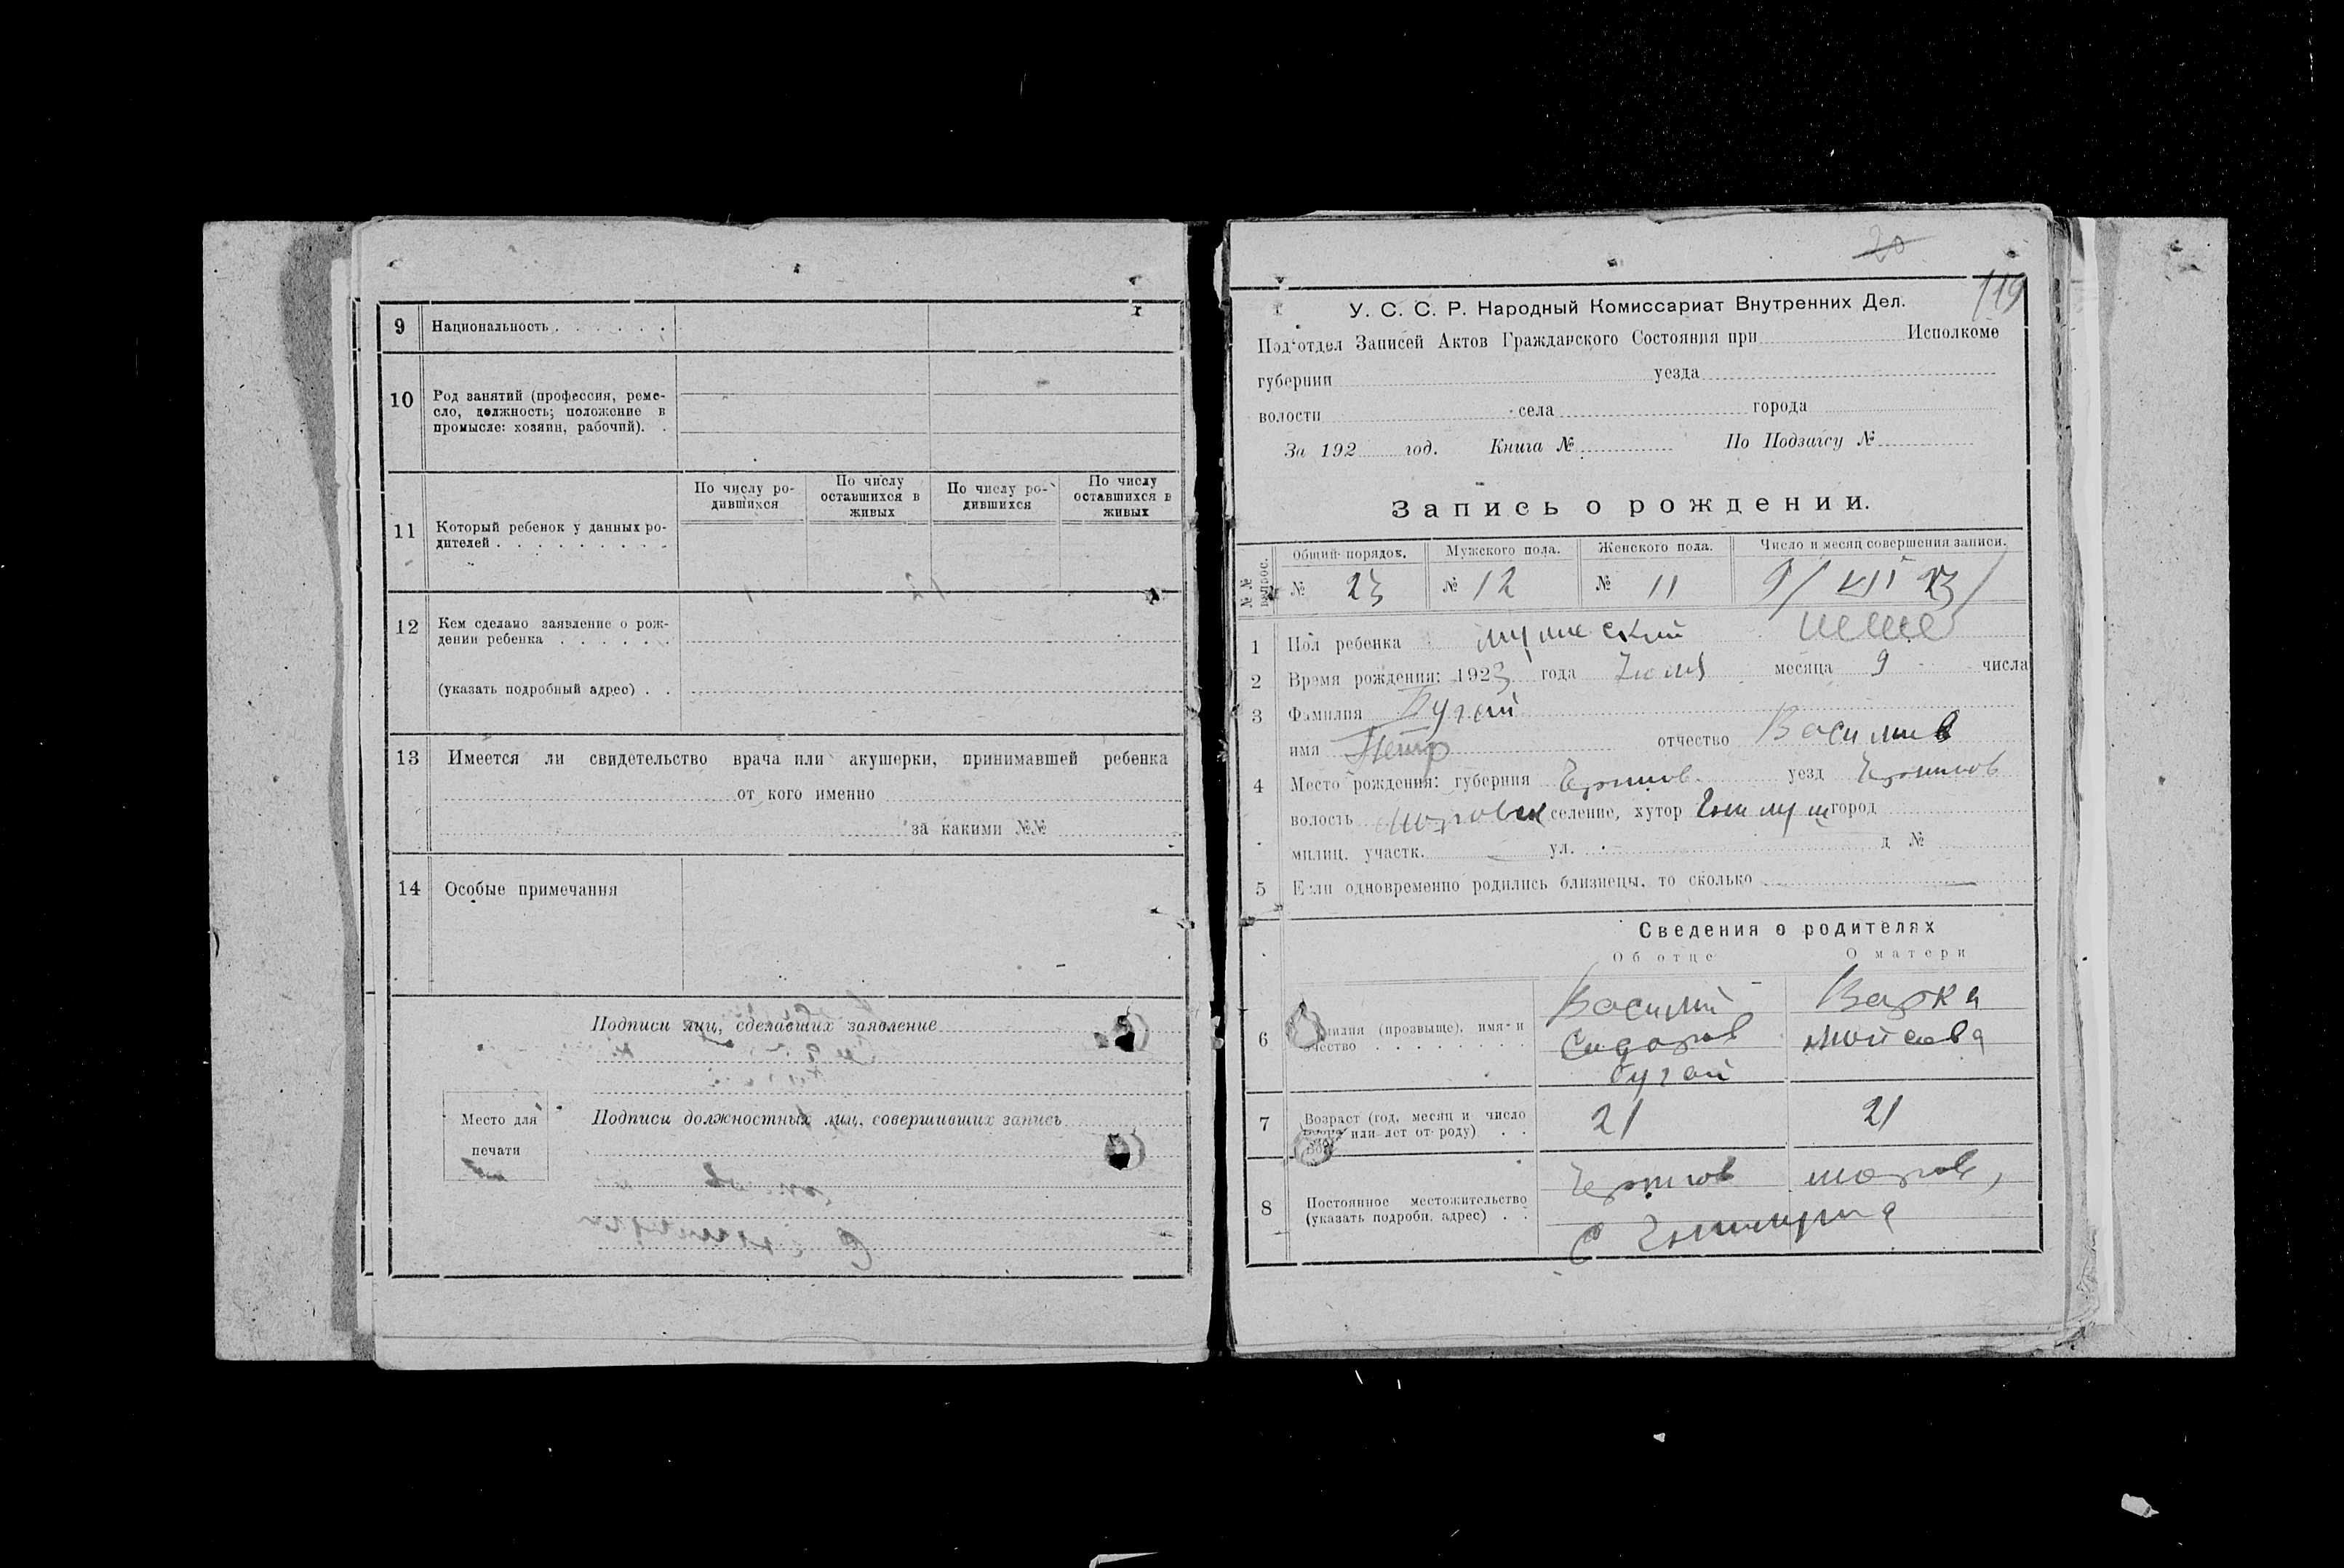 9 Национальность . . . . . .
10 Род занятий (профессия, реме-
сло, должность; положение в
промысле: хозяин, рабочий). .
11 Который ребенок у данных ро-
дителей . . . . . . . . .
По числу ро-
дившихся
По числу
оставшихся в
живых
По числу ро-
дившихся
По числу
оставшихся в
живых
12 Кем сделано заявление о рож-
дении ребенка . . . . . .
(указать подробный адрес) . .
13 Имеется ли свидетельство врача или акушерки, принимавшей ребенка
от кого именно
за какими №№
14 Особые примечания
Подписи лиц, сделавших заявление
Место для
печати
Подписи должностных лиц, совершивших запись
20
119
У. С. С. Р. Народный Комиссариат Внутренних Дел.
Под'отдел Записей Актов Гражданского Состояния при Исполкоме
губернии уезда
волости села города
За 192 год. Книга № По Подзагсу №
Запись о рождении.
№№ вопрос.
Общий порядок. Мужского пола. Женского пола. Число и месяц совершения записи.
№ 23 № 12 № 11 9/VII 23
1 Пол ребенка мужеский
2 Время рождения: 1923 года Июля месяца 9 числа
3 Фамилия Бугай
имя Петр отчество Василиев
4 Место рождения: губерния Чернигов. уезд Чернигов
волость селение, хутор город
милиц. участк. ул. д №
5 Если одновременно родились близнецы, то сколько —
Сведения о родителях
Об отце О матери
6 Фамилия (прозвище), имя и
отчество . . . . . . . .
Василий
Сидоров
Бугай
Варка
Мойсеева
7 Возраст (год, месяц и число
или лет от роду) . .
21 21
8 Постоянное местожительство
(указать подробн. адрес) . .
Чернигов
с